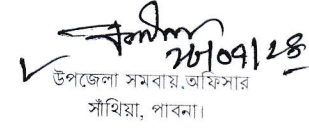 ২৮/০৭/২৪
উপজেলা সমবায়.অফিসার
সাঁথিয়া, পাবনা।